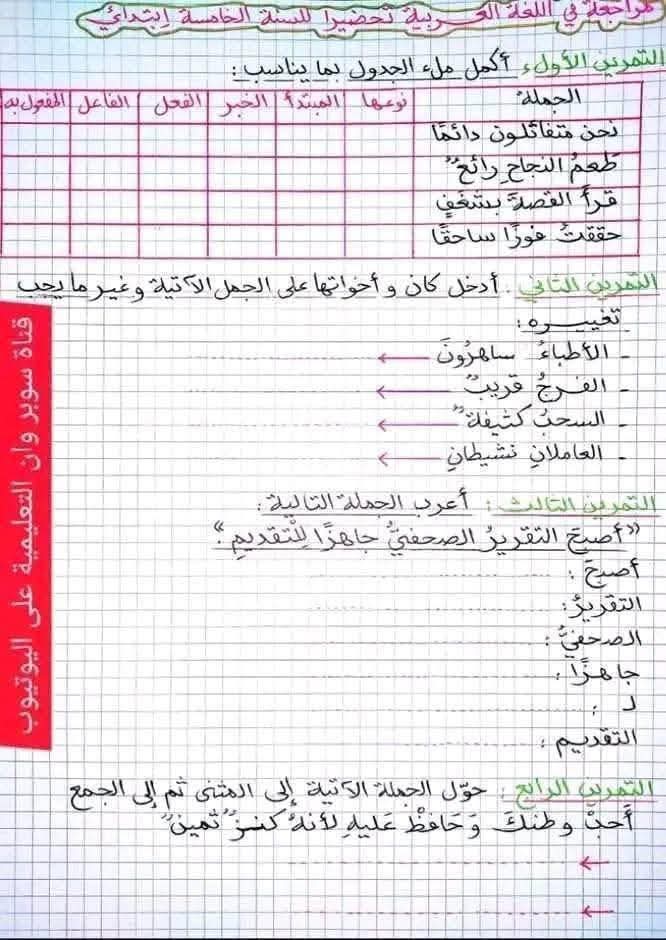 مراجعة في اللغة العربية تحضيرا للسنة الخامسة إبتدائي
التمرين الأول، أكمل ملء الجدول بما يناسب:
الجملة نوعها المبتدأ الخبر الفعل الفاعل المفعول به
نحن متفائلون دائمًا
طعمُ النجاحِ رائعٌ
قرأ القصةَ بشغفٍ
حققتُ فوزًا ساحقًا
التمرين الثاني: أدخل كان و أخواتها على الجمل الآتية و غير ما يجب
تغييره:
- الأطباءُ ساهرُونَ
- الفرجُ قريبٌ
- السحبُ كثيفةٌ
- العاملانِ نشيطانِ
التمرين الثالث: أعرب الجملة التالية:
"أصبحَ التقريرُ الصحفيُّ جاهزًا لِلْتقديمِ."
أصبحَ:
التقريرُ:
الصحفيُّ:
جاهزًا:
لـ:
التقديم:
التمرين الرابع: حوّل الجملة الآتية إلى المثنى ثم إلى الجمع
أَحبّْ وطنكَ وَحَافظْ عَليهِ لأنهُ كنزٌ ثمينٌ
قناة سوبر وان التعليمية على اليوتيوب